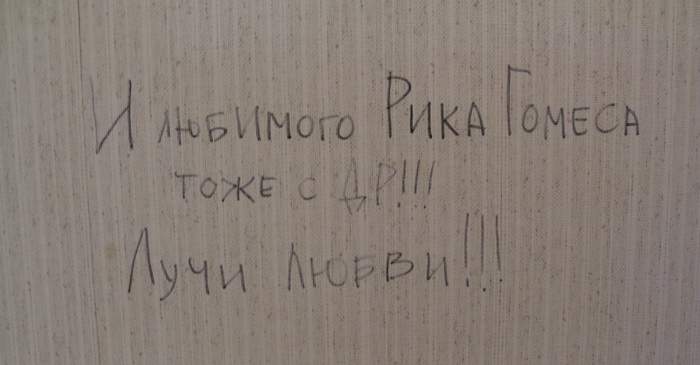 И любимого Рика Гомеса
тоже с ДР!!!
Лучи любви!!!